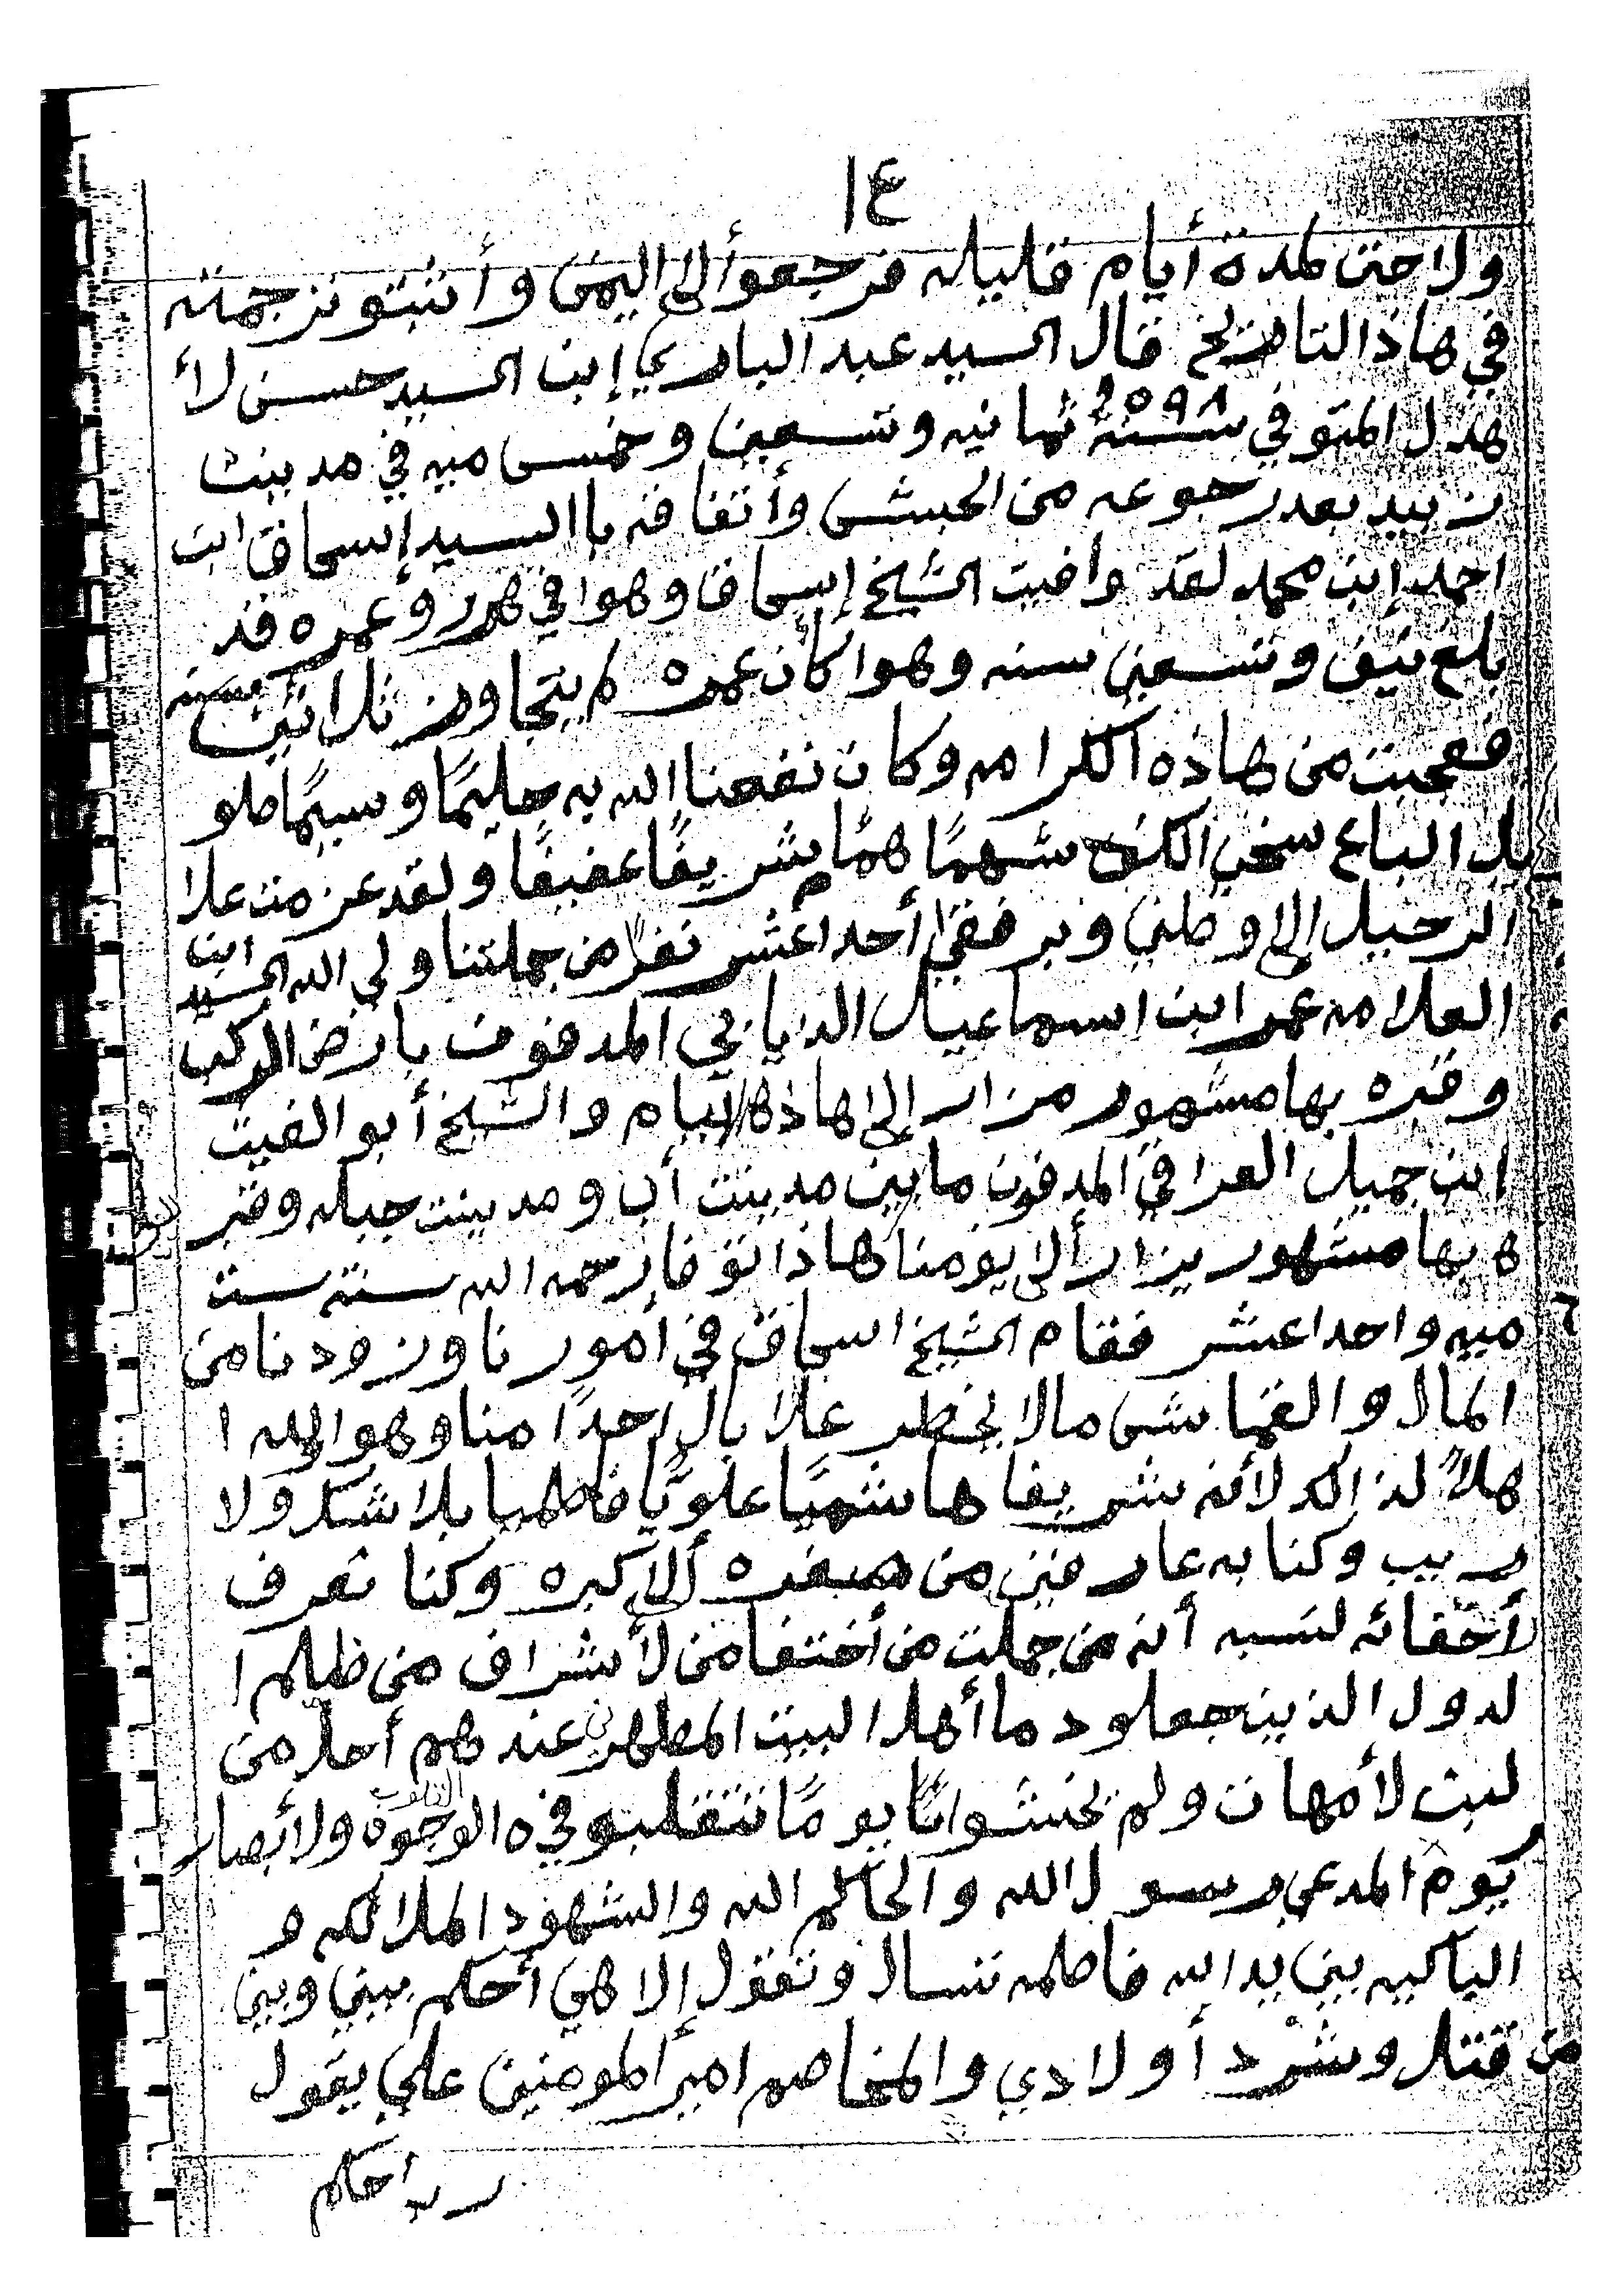 ١٤
ولا حتى لمدة أيام قليله فرجعو ألى اليمن وأثبتو ترجمته
في هاذا التاريخ قال السيد عبد الباري إبن السيد حسن لأ
هدل المتوفي سنة ٥٩٨ ثمانيه وتسعين وخمس ميه في مدينت
زبيد بعد رجوعه من الحبشى وأتفاقه باالسيد إسحاق ابن
احمد إبن محمد لقد وافيت الشيخ إسحاق وهوا في هرر وعمره قد
بلغ نيف وتسعين سنه وهوا كأن عمره لم يتجاوز ثلاثين سنه
فعجبت من هاذه الكرامه وكان نفعنا الله به حليمًا وسيمًا طو
يل الباع سخي الكف شهمًا همًام شريفًا عفيفًا ولقد عزمت علا
الرحيل إلى وطني وبرفقتي أحدا عشر نفرًا من جملتنا ولي الله السيد ابن
العلامه عمر ابن اسماعيل الذيابي المدفون بارض الركب
وقبره بها مشهور مزار إلى هاذه لأيام والشيخ أبو الغيث
ابن جميل العراقي المدفون مابين مدينت أب ومدينت جبله وقبر
ه بها مشهور يزار ألى يومنا هاذا توفا رحمه الله سنة ست
ميه واحدا عشر فقام الشيخ اسحاق في أمورنا وزودنا من
المال والقماش مالا يخطر علا بال احدًا منا وهو والله ا
هلاً لذالك لأنه شريفا هاشميًا علويًا فاطميا بلا شك ولا
ريب وكنا به عارفين من صغره ألى كبره وكنا نعرف
لأخفائه لنسبه أنه من جملت من أختفا من لأشراف من ظلم ا
لدول الذين جعلو دما أهل البيت المطهرين عندهم أحلا من
لبن لأمهات ولم يخشوا يومًا تتقلبو فيه الوجوه القلوب ولأبصار
يوم المدعي رسول الله والحاكم الله والشهود الملائكه و
الباكيه بين يد الله فاطمه تسال وتقول إلاهي أحكم بيني وبين
من قتل وشرد أولادي والمخاصم امير المومنين علي يقول
رب احكم